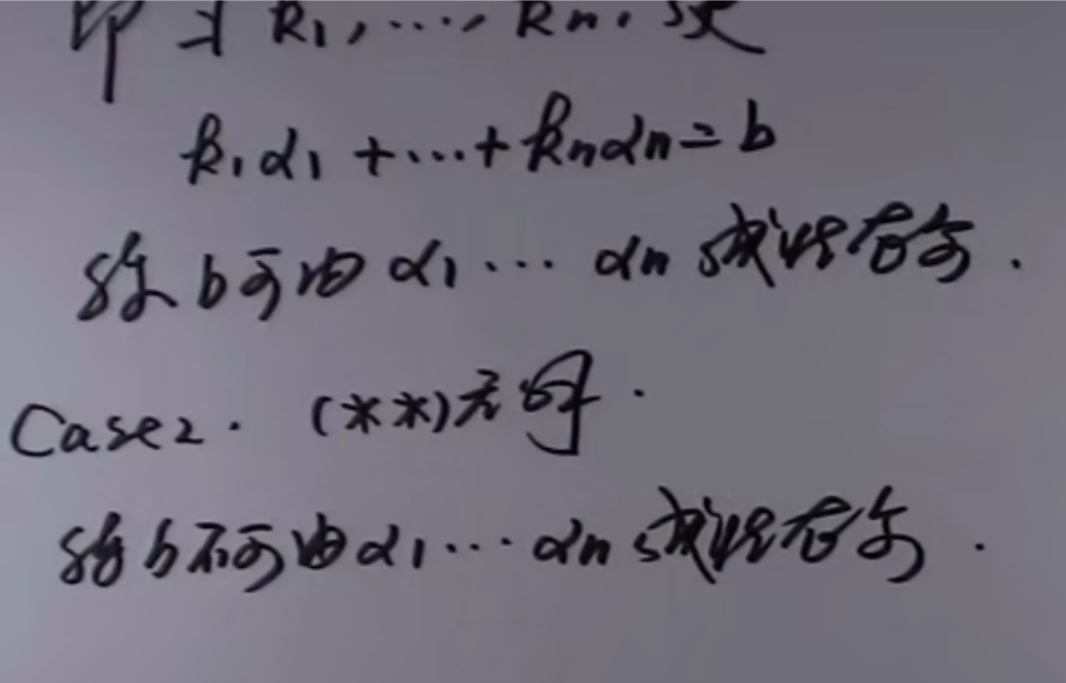 即 ∃ k₁, ⋯, kₙ, 使
k₁α₁ + ⋯ + kₙαₙ = b
称 b 可由 α₁ ⋯ αₙ 线性表示.
Case 2. (**) 无解.
称 b 不可由 α₁ ⋯ αₙ 线性表示.